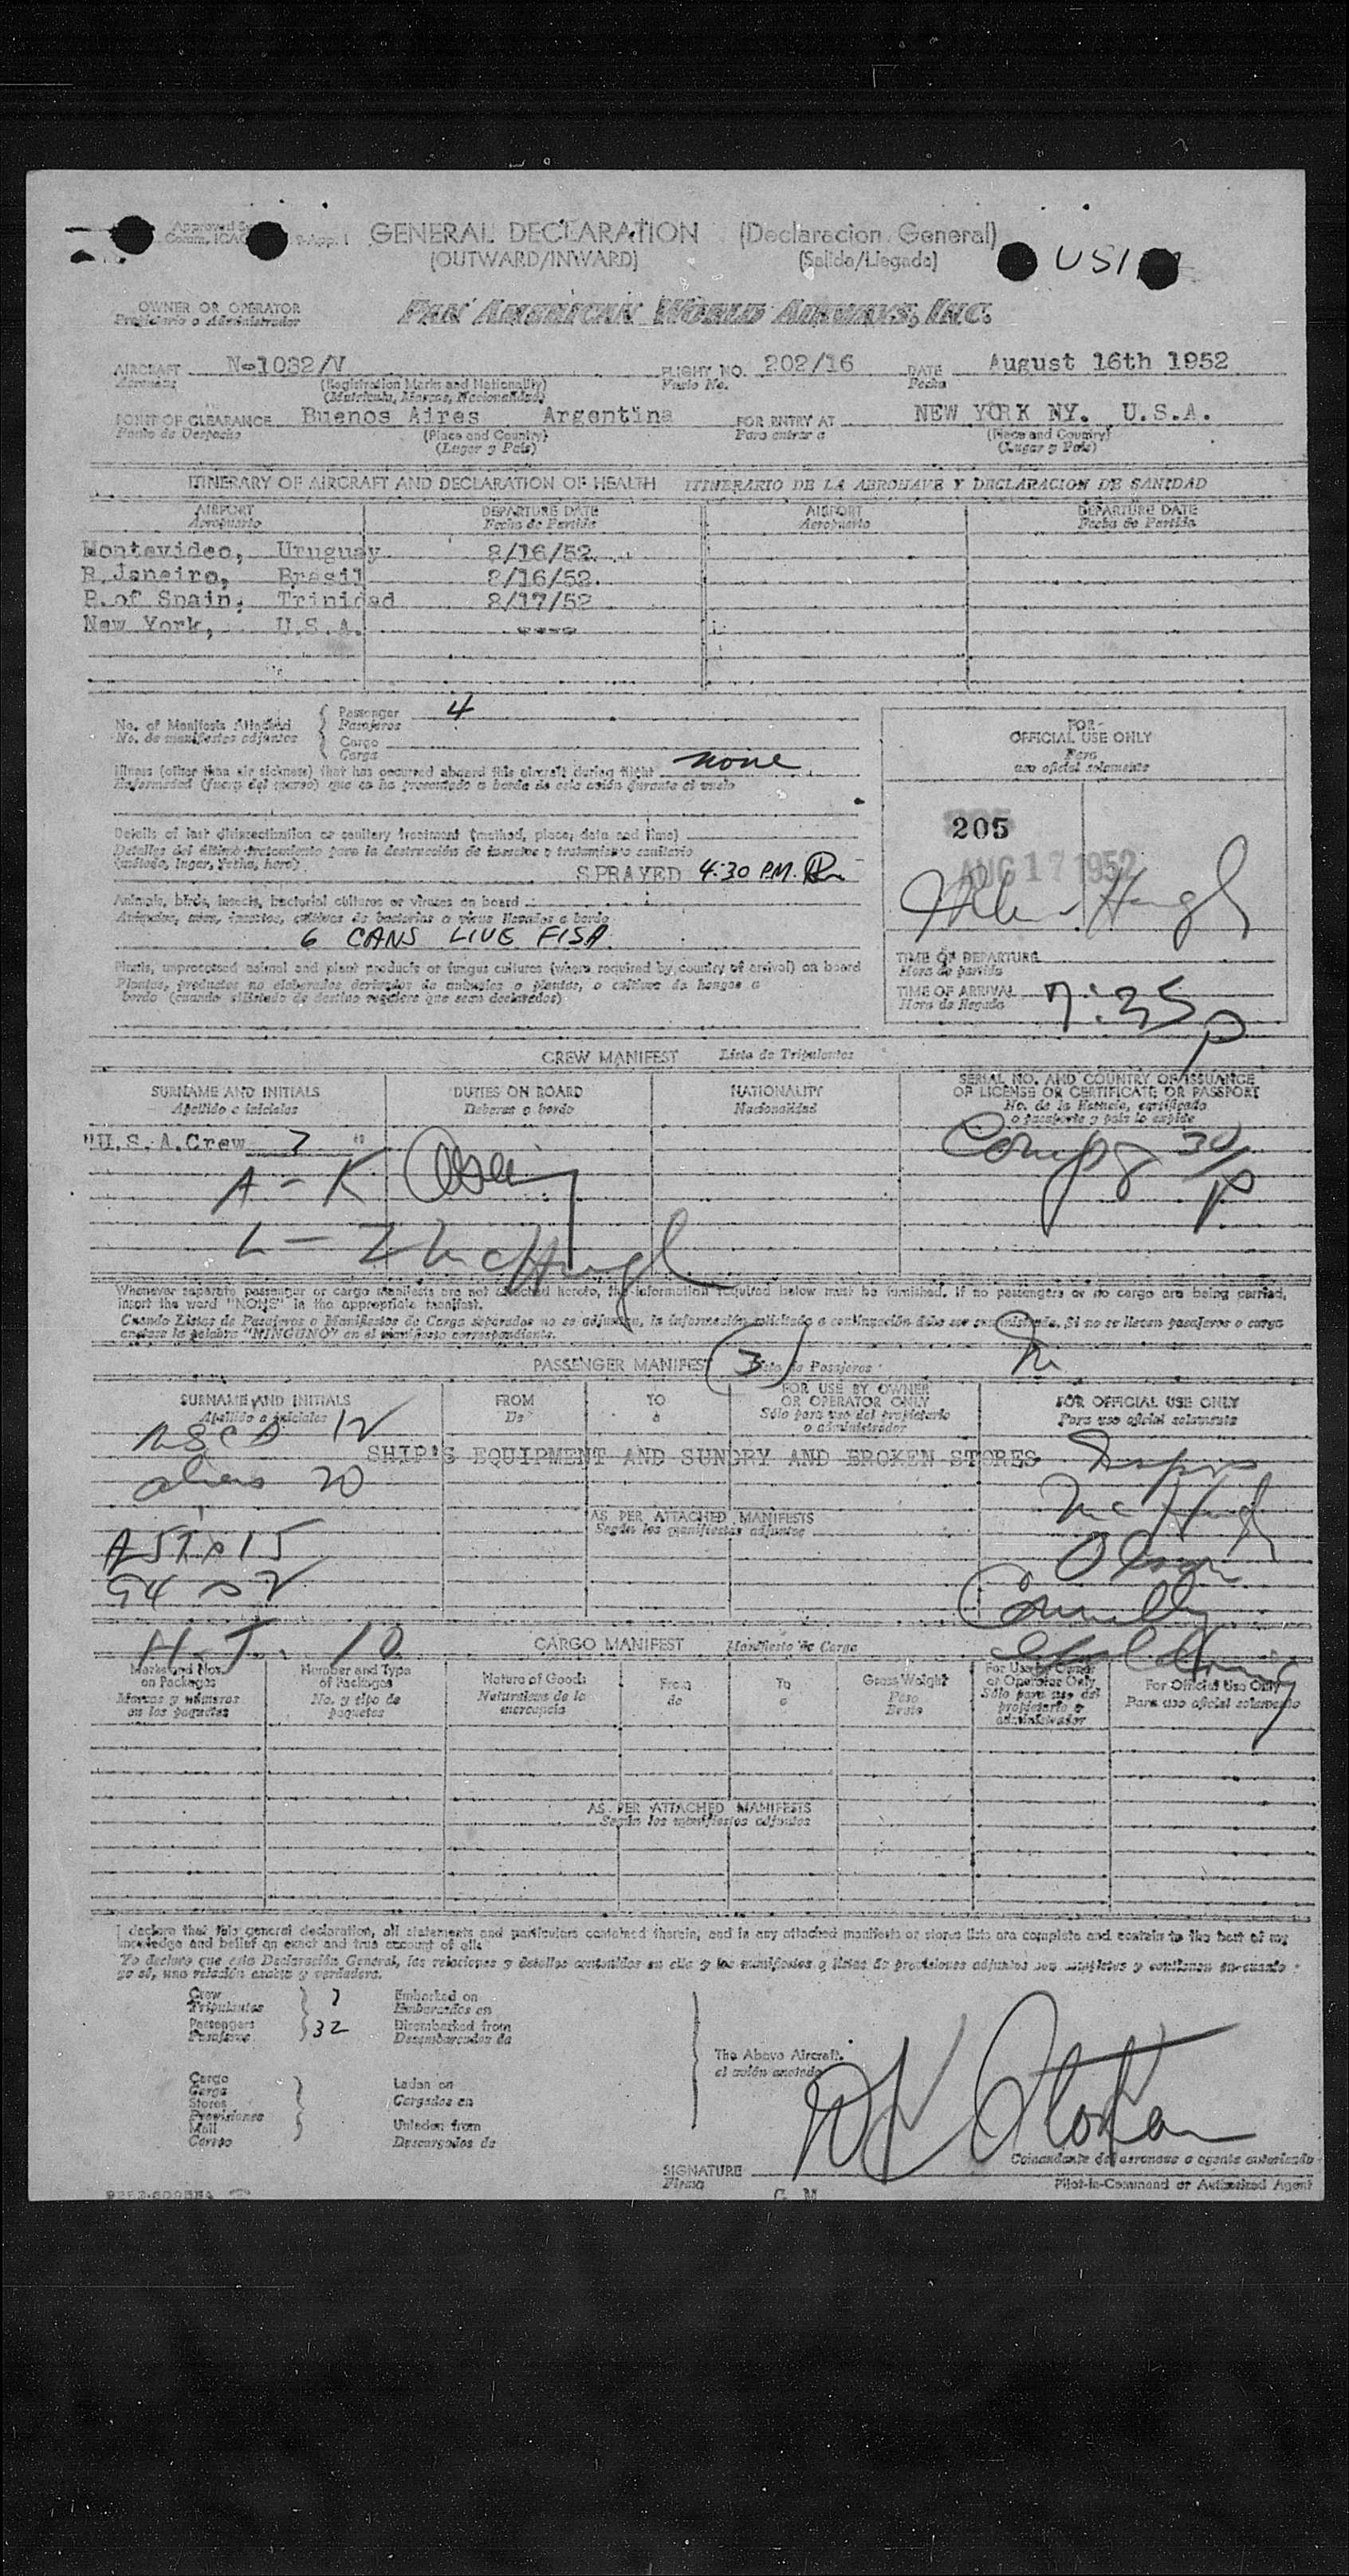 GENERAL DECLARATION (Declaracion General)
(OUTWARD/INWARD) (Salida/Llegada)
USI
OWNER OR OPERATOR
Propietario o Administrador
PAN AMERICAN WORLD AIRWAYS, INC.
AIRCRAFT N-1032/V FLIGHT NO. 202/16 DATE August 16th 1952
Aeronave (Registration Marks and Nationality) Vuelo No. Fecha
(Matricula, Marcas, Nacionalidad)
POINT OF CLEARANCE Buenos Aires Argentina FOR ENTRY AT NEW YORK NY. U.S.A.
Punto de Despacho (Place and Country) Para entrar a (Place and Country)
(Lugar y Pais) (Lugar y Pais)
ITINERARY OF AIRCRAFT AND DECLARATION OF HEALTH ITINERARIO DE LA AERONAVE Y DECLARACION DE SANIDAD
AIRPORT DEPARTURE DATE AIRPORT DEPARTURE DATE
Aeropuerto Fecha de Partida Aeropuerto Fecha de Partida
Montevideo, Uruguay 8/16/52.
R.Janeiro, Brasil 8/16/52.
P.of Spain, Trinidad 8/17/52
New York, U.S.A. ----
No. of Manifests Attached Passenger 4
No. de manifiestos adjuntos Pasajeros
Cargo
Carga
FOR
OFFICIAL USE ONLY
Para
uso oficial solamente
Illness (other than air sickness) that has occurred aboard this aircraft during flight none
Enfermedad (fuera del mareo) que se ha presentado a bordo de este avión durante el vuelo
205
AUG 17 1952
Details of last disinsectization or sanitary treatment (method, place, date and time)
Detalles del último tratamiento para la destrucción de insectos o tratamiento sanitario
(método, lugar, fecha, hora)
SPRAYED 4:30 P.M.
Animals, birds, insects, bacterial cultures or viruses on board
Animales, aves, insectos, cultivos de bacterias o virus llevados a bordo
6 CANS LIVE FISH
Plants, unprocessed animal and plant products or fungus cultures (where required by country of arrival) on board
Plantas, productos no elaborados derivados de animales o plantas, o cultivos de hongos a
bordo (cuando el Estado de destino requiere que sean declarados)
TIME OF DEPARTURE
Hora de partida
TIME OF ARRIVAL 7:35 P
Hora de llegada
CREW MANIFEST Lista de Tripulantes
SURNAME AND INITIALS DUTIES ON BOARD NATIONALITY SERIAL NO. AND COUNTRY OF ISSUANCE
OF LICENSE OR CERTIFICATE OR PASSPORT
Apellido e iniciales Deberes a bordo Nacionalidad No. de la licencia, certificado
o pasaporte y pais lo expide
"U.S.A.Crew 7 "
A - K
L - Z McHugh
Whenever separate passenger or cargo manifests are not attached hereto, the information required below must be furnished. If no passengers or no cargo are being carried,
insert the word "NONE" in the appropriate manifest.
Cuando Listas de Pasajeros o Manifiestos de Carga separados no se adjuntan, la información solicitada a continuación debe ser suministrada. Si no se llevan pasajeros o carga
anótese la palabra "NINGUNO" en el manifiesto correspondiente.
PASSENGER MANIFEST (3) Lista de Pasajeros
SURNAME AND INITIALS FROM TO FOR USE BY OWNER OR OPERATOR ONLY FOR OFFICIAL USE ONLY
Apellido e iniciales De a Sólo para uso del propietario o administrador Para uso oficial solamente
12
SHIP'S EQUIPMENT AND SUNDRY AND BROKEN STORES
aliens 20
McHugh
AS PER ATTACHED MANIFESTS
Según los manifiestos adjuntos
Olson
Connolly
H.T. 10
CARGO MANIFEST Manifiesto de Carga
Marks and Nos. on Packages Number and Type of Packages Nature of Goods From To Gross Weight For Use by Owner or Operator Only For Official Use Only
Marcas y números en los paquetes No. y tipo de paquetes Naturaleza de la mercancia de a Peso Bruto Sólo para uso del propietario o administrador Para uso oficial solamente
AS PER ATTACHED MANIFESTS
Según los manifiestos adjuntos
I declare that this general declaration, all statements and particulars contained therein, and in any attached manifests or stores lists are complete and contain to the best of my
knowledge and belief an exact and true account of all
Yo declaro que esta Declaración General, las relaciones y detalles contenidos en ella y los manifiestos o listas de provisiones adjuntos son completos y contienen en cuanto
yo sé, una relación exacta y verdadera.
Crew 7 Embarked on
Tripulantes Embarcados en
Passengers 32 Disembarked from
Pasajeros Desembarcados de
The Above Aircraft.
el avión anotado
Cargo Laden on
Carga
Stores Cargados en
Provisiones
Mail Unladen from
Correo Descargados de
Comandante de aeronave o agente autorizado
SIGNATURE
Firma
Pilot-in-Command or Authorized Agent